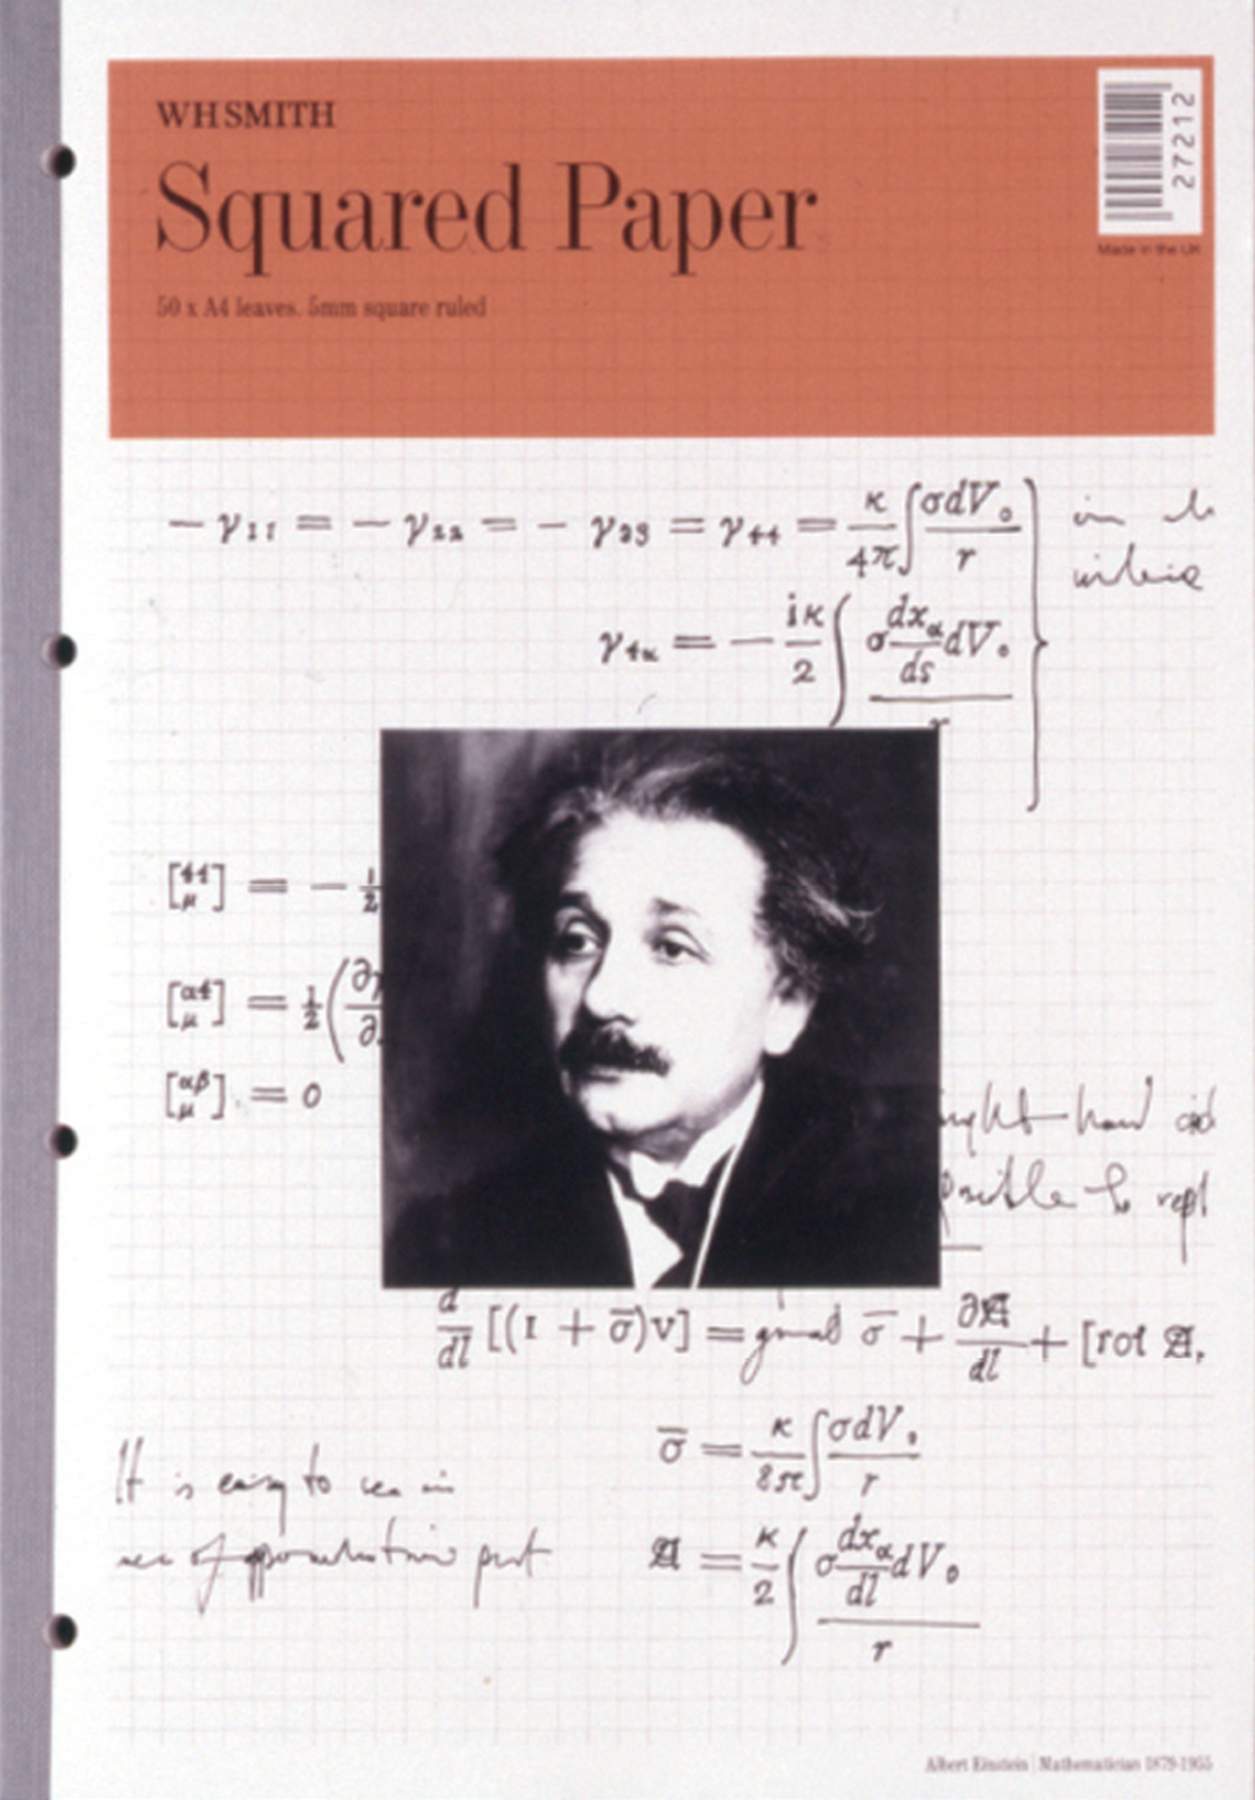 WHSMITH
Squared Paper
50 x A4 leaves. 5mm square ruled
27212
Made in the UK
− γ₁₁ = − γ₂₂ = − γ₃₃ = γ₄₄ = κ/4π ∫ σdV₀/r
in
γ₄α = − iκ/2 ∫ σ dxα/ds dV₀ / r
[44 μ] = − 1/2
[α4 μ] = 1/2 (∂γ/∂
[αβ μ] = 0
ight hand sid
possible to repl
d/dl [(1 + σ̅)v] = grad σ̅ + ∂𝔄/dl + [rot 𝔄,
σ̅ = κ/8π ∫ σdV₀/r
It is easy to see in
𝔄 = κ/2 ∫ σ dxα/dl dV₀ / r
of
Albert Einstein | Mathematician 1879-1955